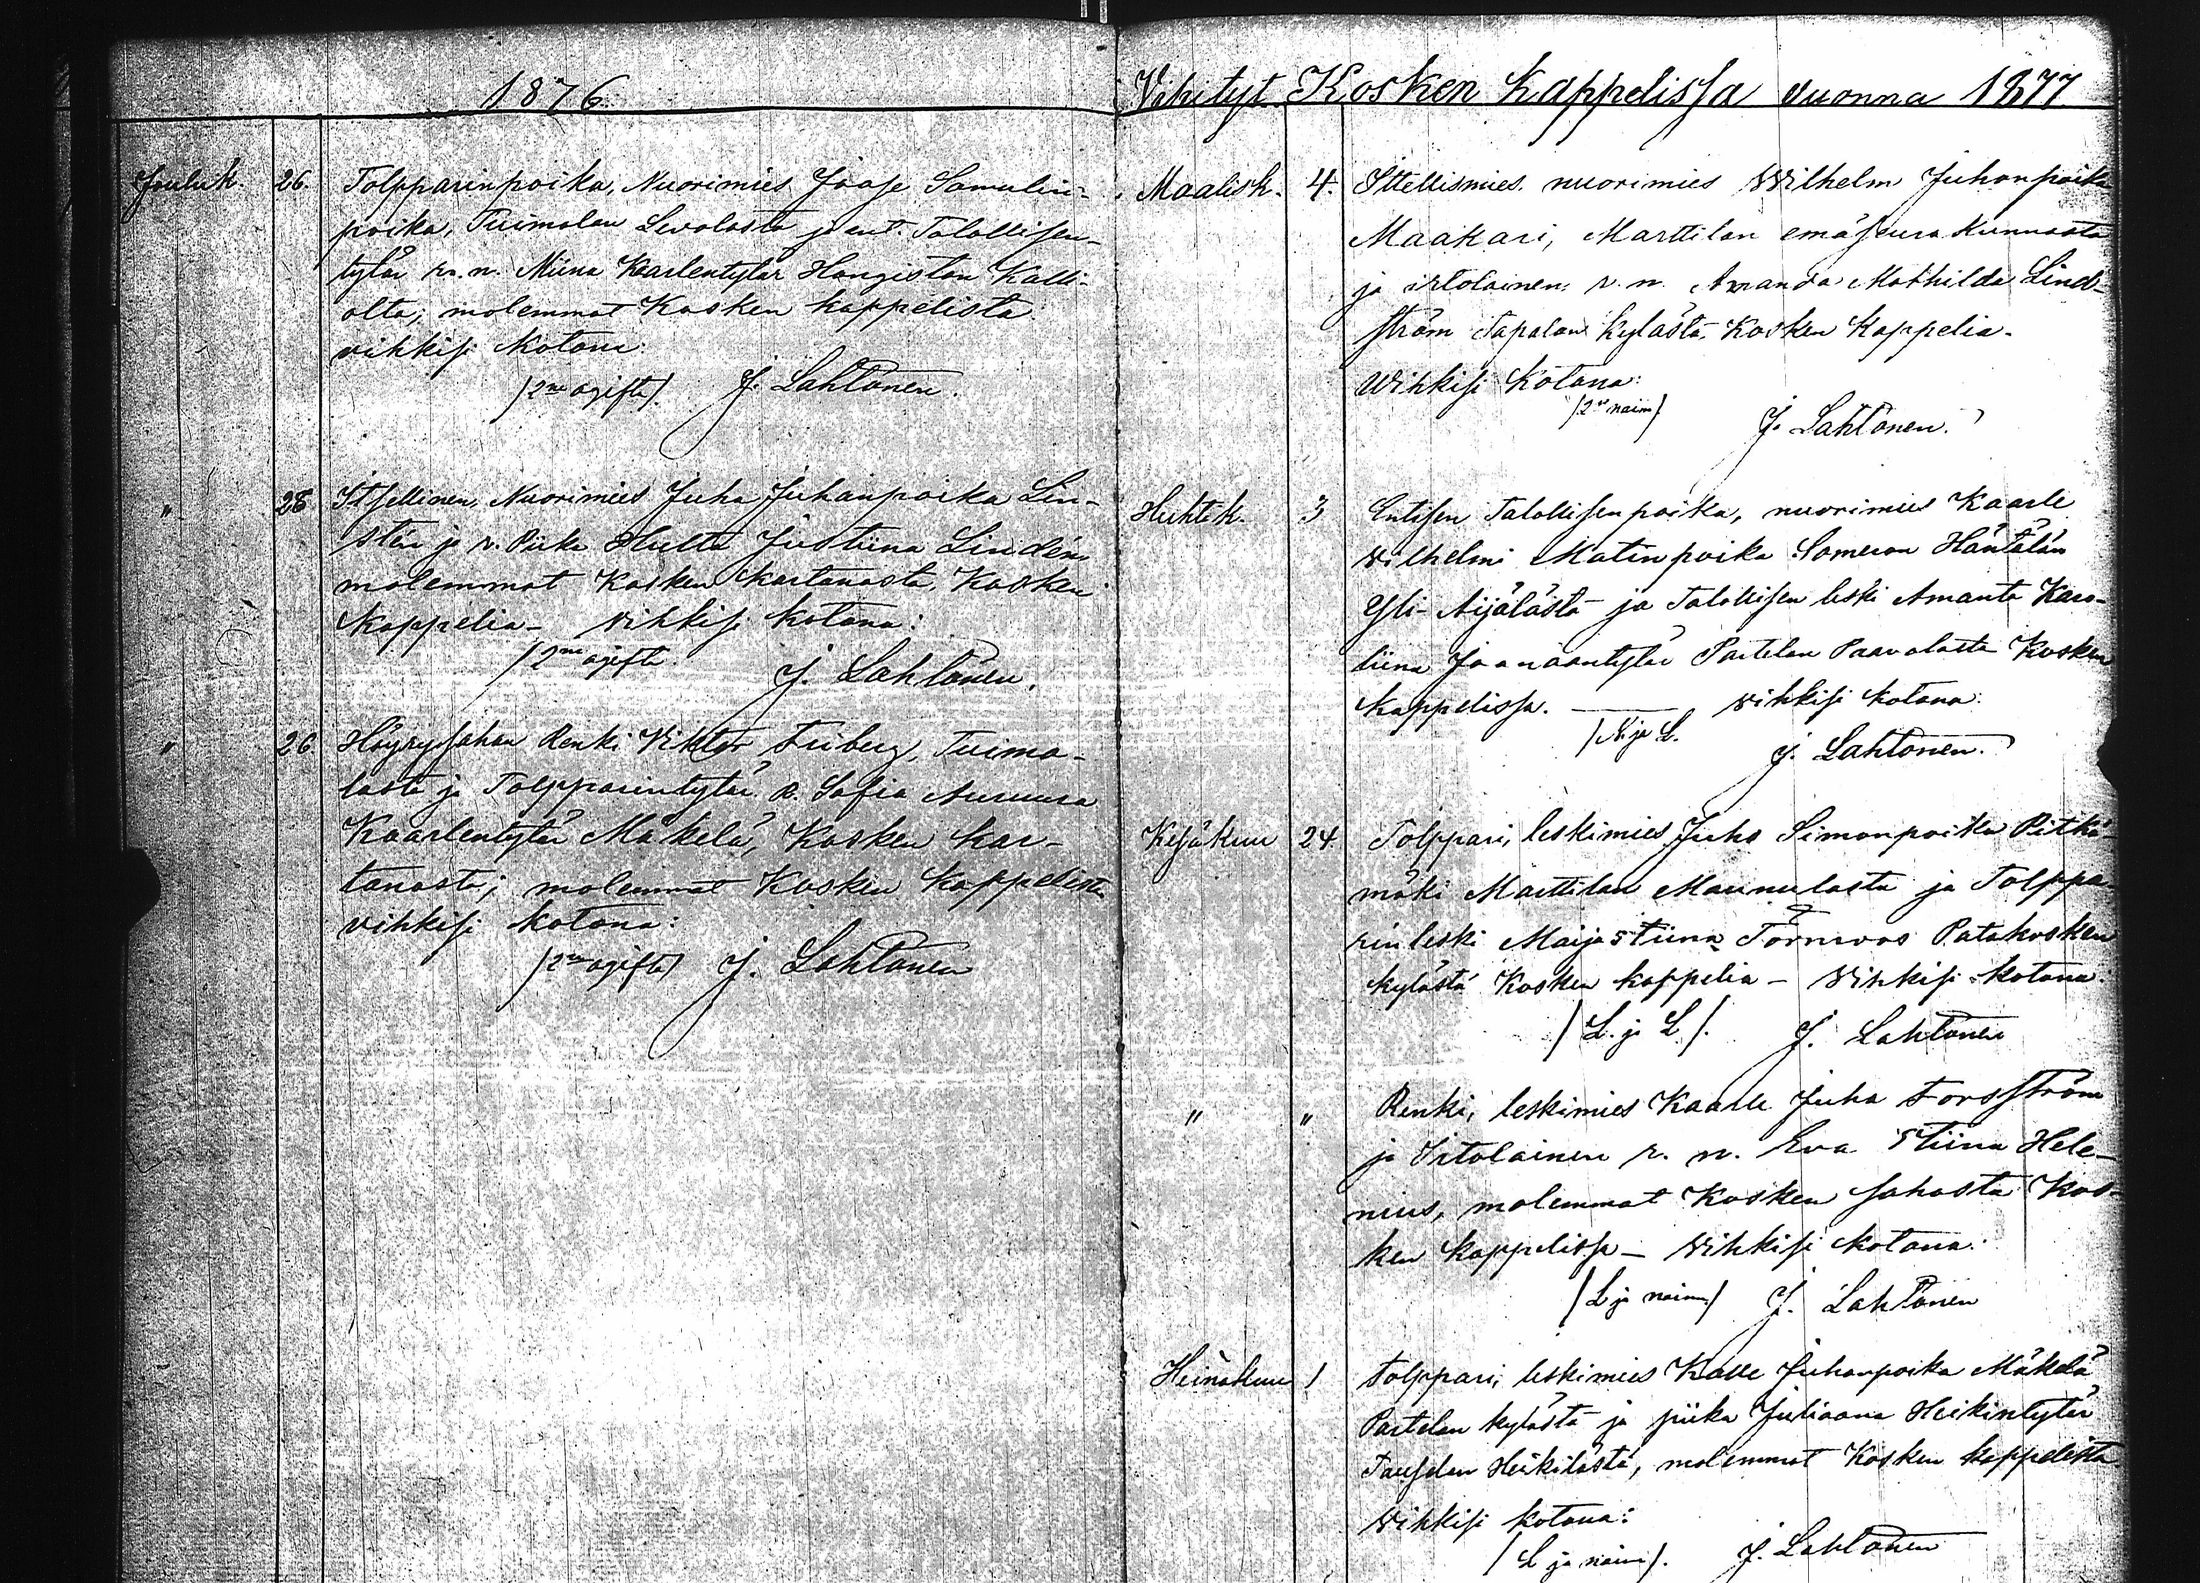 1876.
Jouluk. 26. Tolpparinpoika, Nuorimies Joose Samulin-
poika, Tuimalan Levolasta ja ent. Talollisen-
tytär n. n. Miina Kaarlentytär Hongiston Kalli-
olta; molemmat Kosken kappelista
vihkisi kotona:
/2ne ogifta/. J. Lahtonen.
" 28 Itsellinen, Nuorimies Juha Juhanpoika Lin-
stén ja n. Piika Hulta Justiina Lindén,
molemmat Kosken kartanosta, Kosken
Kappelia – vihkisi kotona:
/2ne ogifta. J. Lahtonen.
" 26 Höyrysahan Renki Viktor Friberg, Tuima-
lasta ja Tolpparintytär n. Sofia Auruura
Kaarlentytär Mäkelä, Kosken kar-
tanosta; molemmat Kosken Kappelista
vihkisi kotona:
/2ne ogifta/ J. Lahtonen
Vihityt Kosken Kappelissa vuonna 1877
Maalisk. 4. Ittellismies nuorimies Wilhelm Juhanpoika
Maakari, Marttilan emäseurakunnasta
ja irtolainen n. n. Amanda Mathilda Lind-
ström Tapalan kylästä, Kosken Kappelia.
Wihkisi Kotona:
/2ne naim/
J. Lahtonen.
Huhtik. 3 Entisen Talollisenpoika, nuorimies Kaarle
Vilhelmi Matinpoika Someron Häntälän
Yli-Äijälästä ja Talollisen leski Amanta Karo-
liina Joonaantytär Partelan Paavolasta Kosken
Kappelissa. – vihkisi kotona:
/N. ja L. J. Lahtonen.
Kesäkuu 24. Tolppari, leskimies Juho Simonpoika Pitkä-
mäki Marttilan Maunulasta ja Tolppa-
rinleski Maija Stiina Törnroos Patakosken
kylästä Kosken kappelia – Vihkisi kotona.
/L. ja L/. J. Lahtonen
" " Renki, leskimies Kaarle Juha Forsström
ja Irtolainen n. n. Eva Stiina Hele-
nius, molemmat Kosken Sahasta Kos-
ken kappelissa – Vihkisi kotona.
/L ja naim/ J. Lahtonen
Heinäkuu 1 Tolppari, leskimies Kalle Juhanpoika Mäkelä
Partelan kylästä ja piika Juliaana Heikintytär
Heikilästä, molemmat Kosken kappelista
Vihkisi kotona:
/L ja naim/. J. Lahtonen